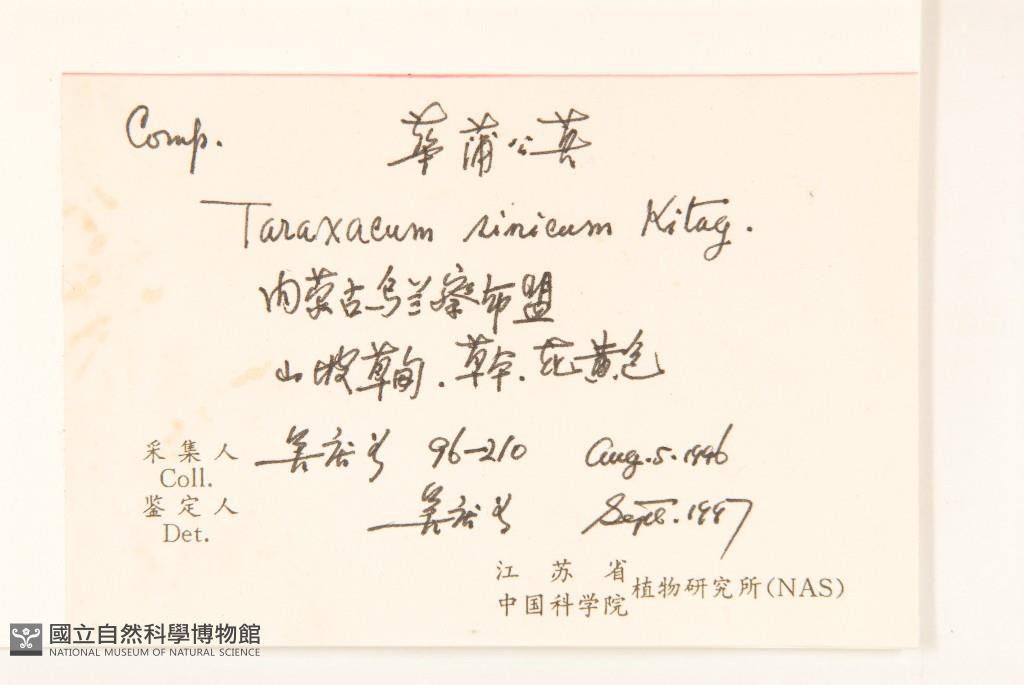 Comp. 華蒲公英
Taraxacum sinicum Kitag.
内蒙古乌兰察布盟
山坡草甸.草本.花黄色
采集人 96-210 Aug.5.1996
Coll.
鉴定人 Sept.1997
Det.
江苏省
中国科学院 植物研究所(NAS)
國立自然科學博物館
NATIONAL MUSEUM OF NATURAL SCIENCE